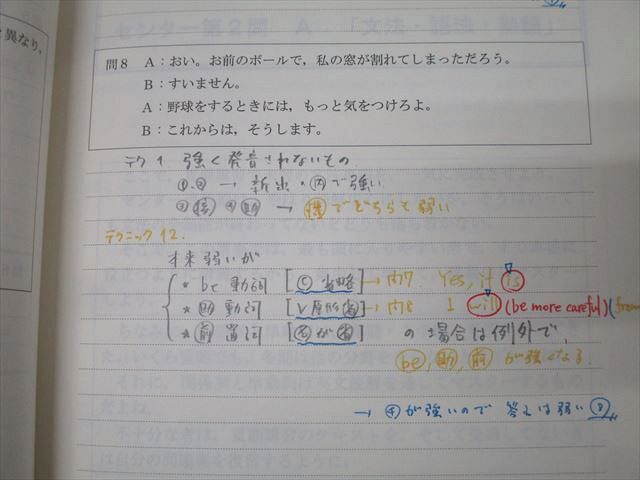 と異なり,
問8 A：おい。お前のボールで，私の窓が割れてしまっただろう。
B：すいません。
A：野球をするときには，もっと気をつけろよ。
B：これからは，そうします。
テク1 強く発音されないもの
①.② → 新出・内で強い
③接 ④助 → 機でどちらも弱い
テクニック12.
本来弱いが
* be動詞 [C 省略] → 問7. Yes, it is
* 助動詞 [V原形省] → 問8 I will (be more careful) (from
* 前置詞 [名が省] の場合は例外で,
be, 助, 前 が強くなる.
→ ④が強いので 答えは弱い